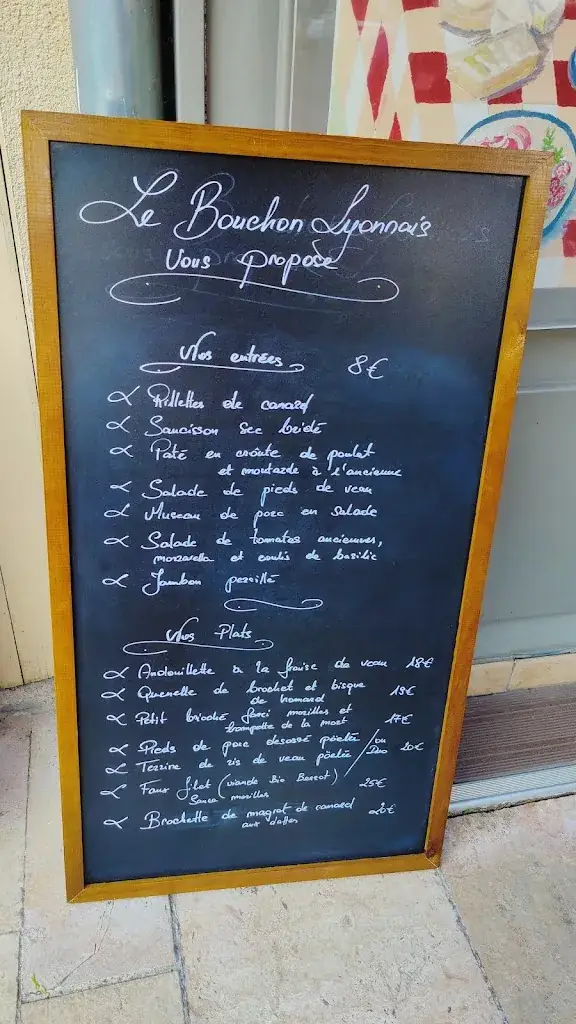 Le Bouchon Lyonnais
Vous propose
Nos entrées 8€
Rillettes de canard
Saucisson sec beidé
Paté en croûte de poulet
et moutarde à l'ancienne
Salade de pieds de veau
Museau de porc en Salade
Salade de tomates anciennes,
mozzarella et coulis de basilic
Jambon persillé
Nos Plats
Andouillette à la fraise de veau 18€
Quenelle de brochet et bisque 19€
de homard
Petit brioché farci morilles et 17€
trompette de la mort
Pieds de porc desossé poêlée / ou Duo 20€
Terrine de ris de veau poêlée
Faux filet (viande Bio Bercot) 25€
Sauce morilles
Brochette de magret de canard 20€
aux dattes